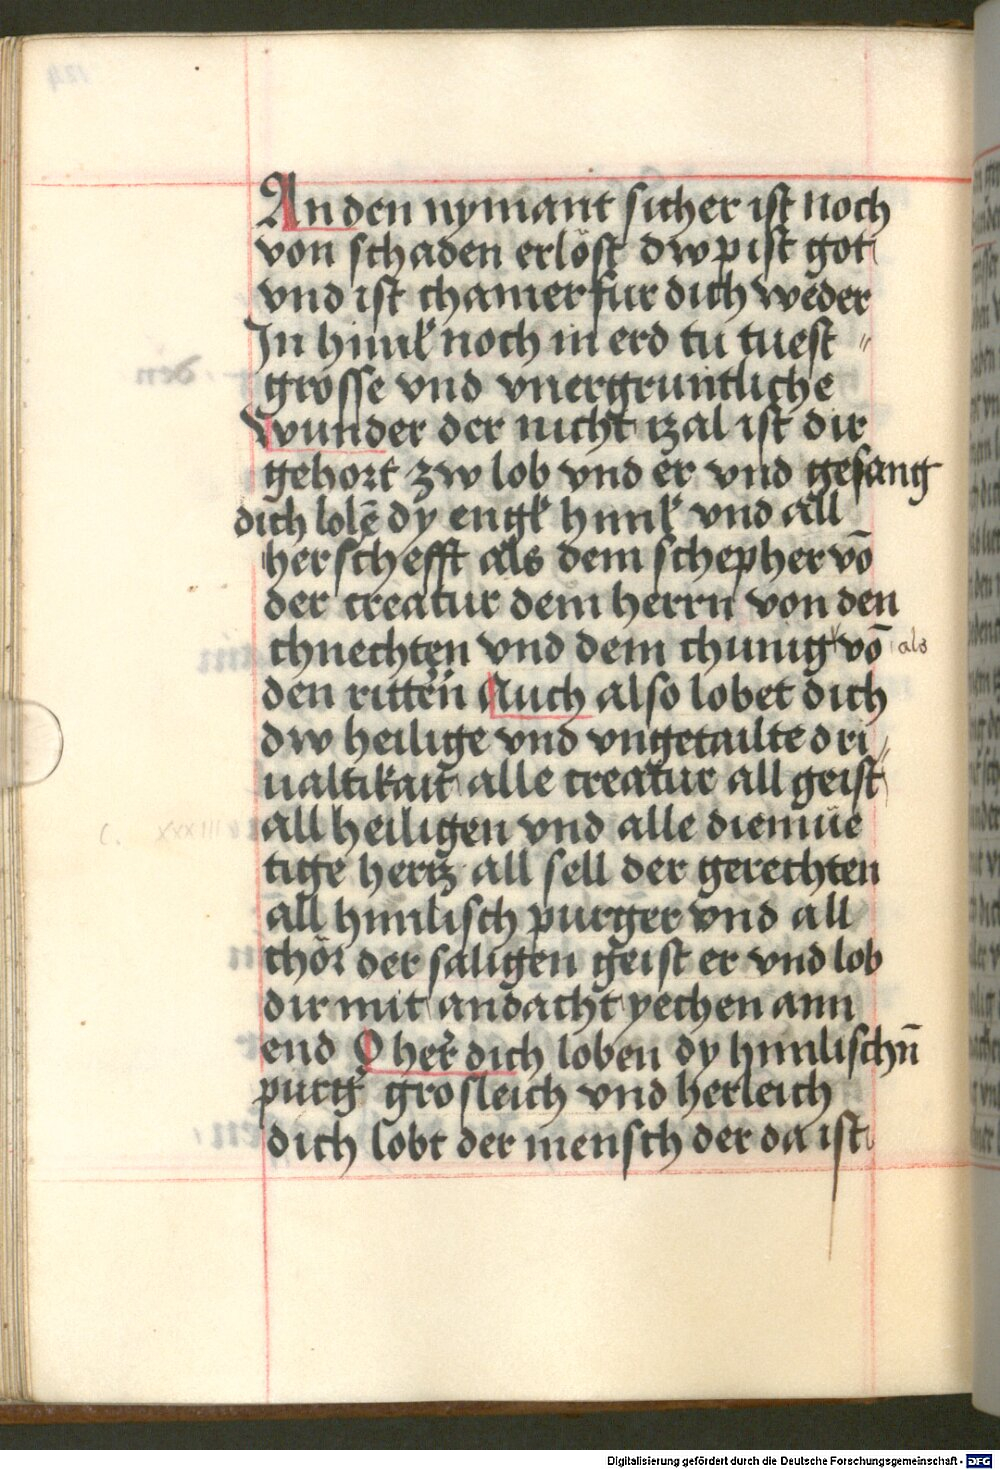 An den nymant sicher ist noch
von schaden erlöst dw pist got
vnd ist chainer fur dich weder
In himl noch in erd tu tuest
grosse vnd vnergruntliche
wunder der nicht tzal ist dir
gehort zw lob vnd er vnd gesang
dich lobē dy engl himl vnd all
herschefft als dem schepher vō
der creatur dem herrn von den
chnechten vnd dem chunig vō als
den rittern Auch also lobet dich
dw heilige vnd vngetailte dri
ualtikait alle creatur all geist
all heiligen vnd alle diemüe
tige hertz all sell der gerechten
all himlisch purger vnd all
chör der saligen geist er vnd lob
dir mit andacht yechen ann
end O her dich loben dy himlischn̄
purg grosleich vnd herleich
dich lobt der mensch der da ist
Digitalisierung gefördert durch die Deutsche Forschungsgemeinschaft - DFG